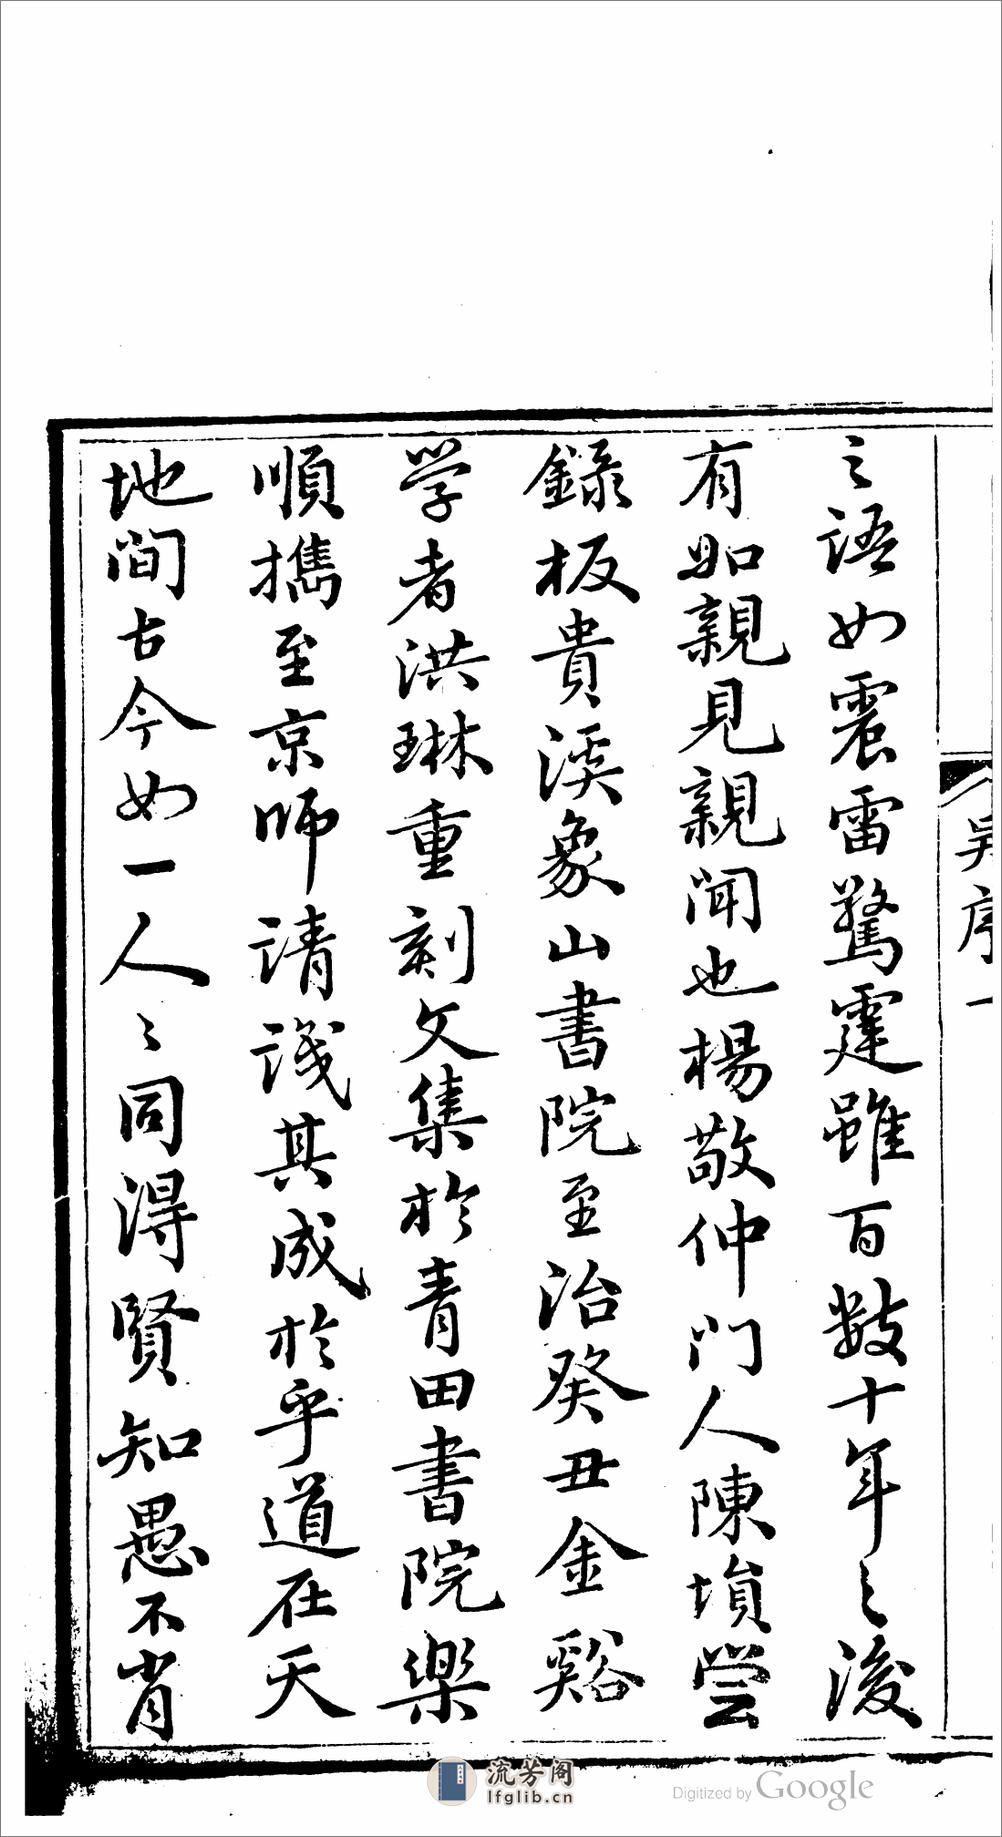 之語如震雷驚霆雖百數十年之後
有如親見親聞也楊敬仲門人陳塤嘗
錄板貴溪象山書院至治癸丑金谿
学者洪琳重刻文集於青田書院樂
順攜至京師請識其成於乎道在天
地間古今如一人〻同得賢知愚不肖
吳序 一
流芳阁
lfglib.cn
Digitized by Google